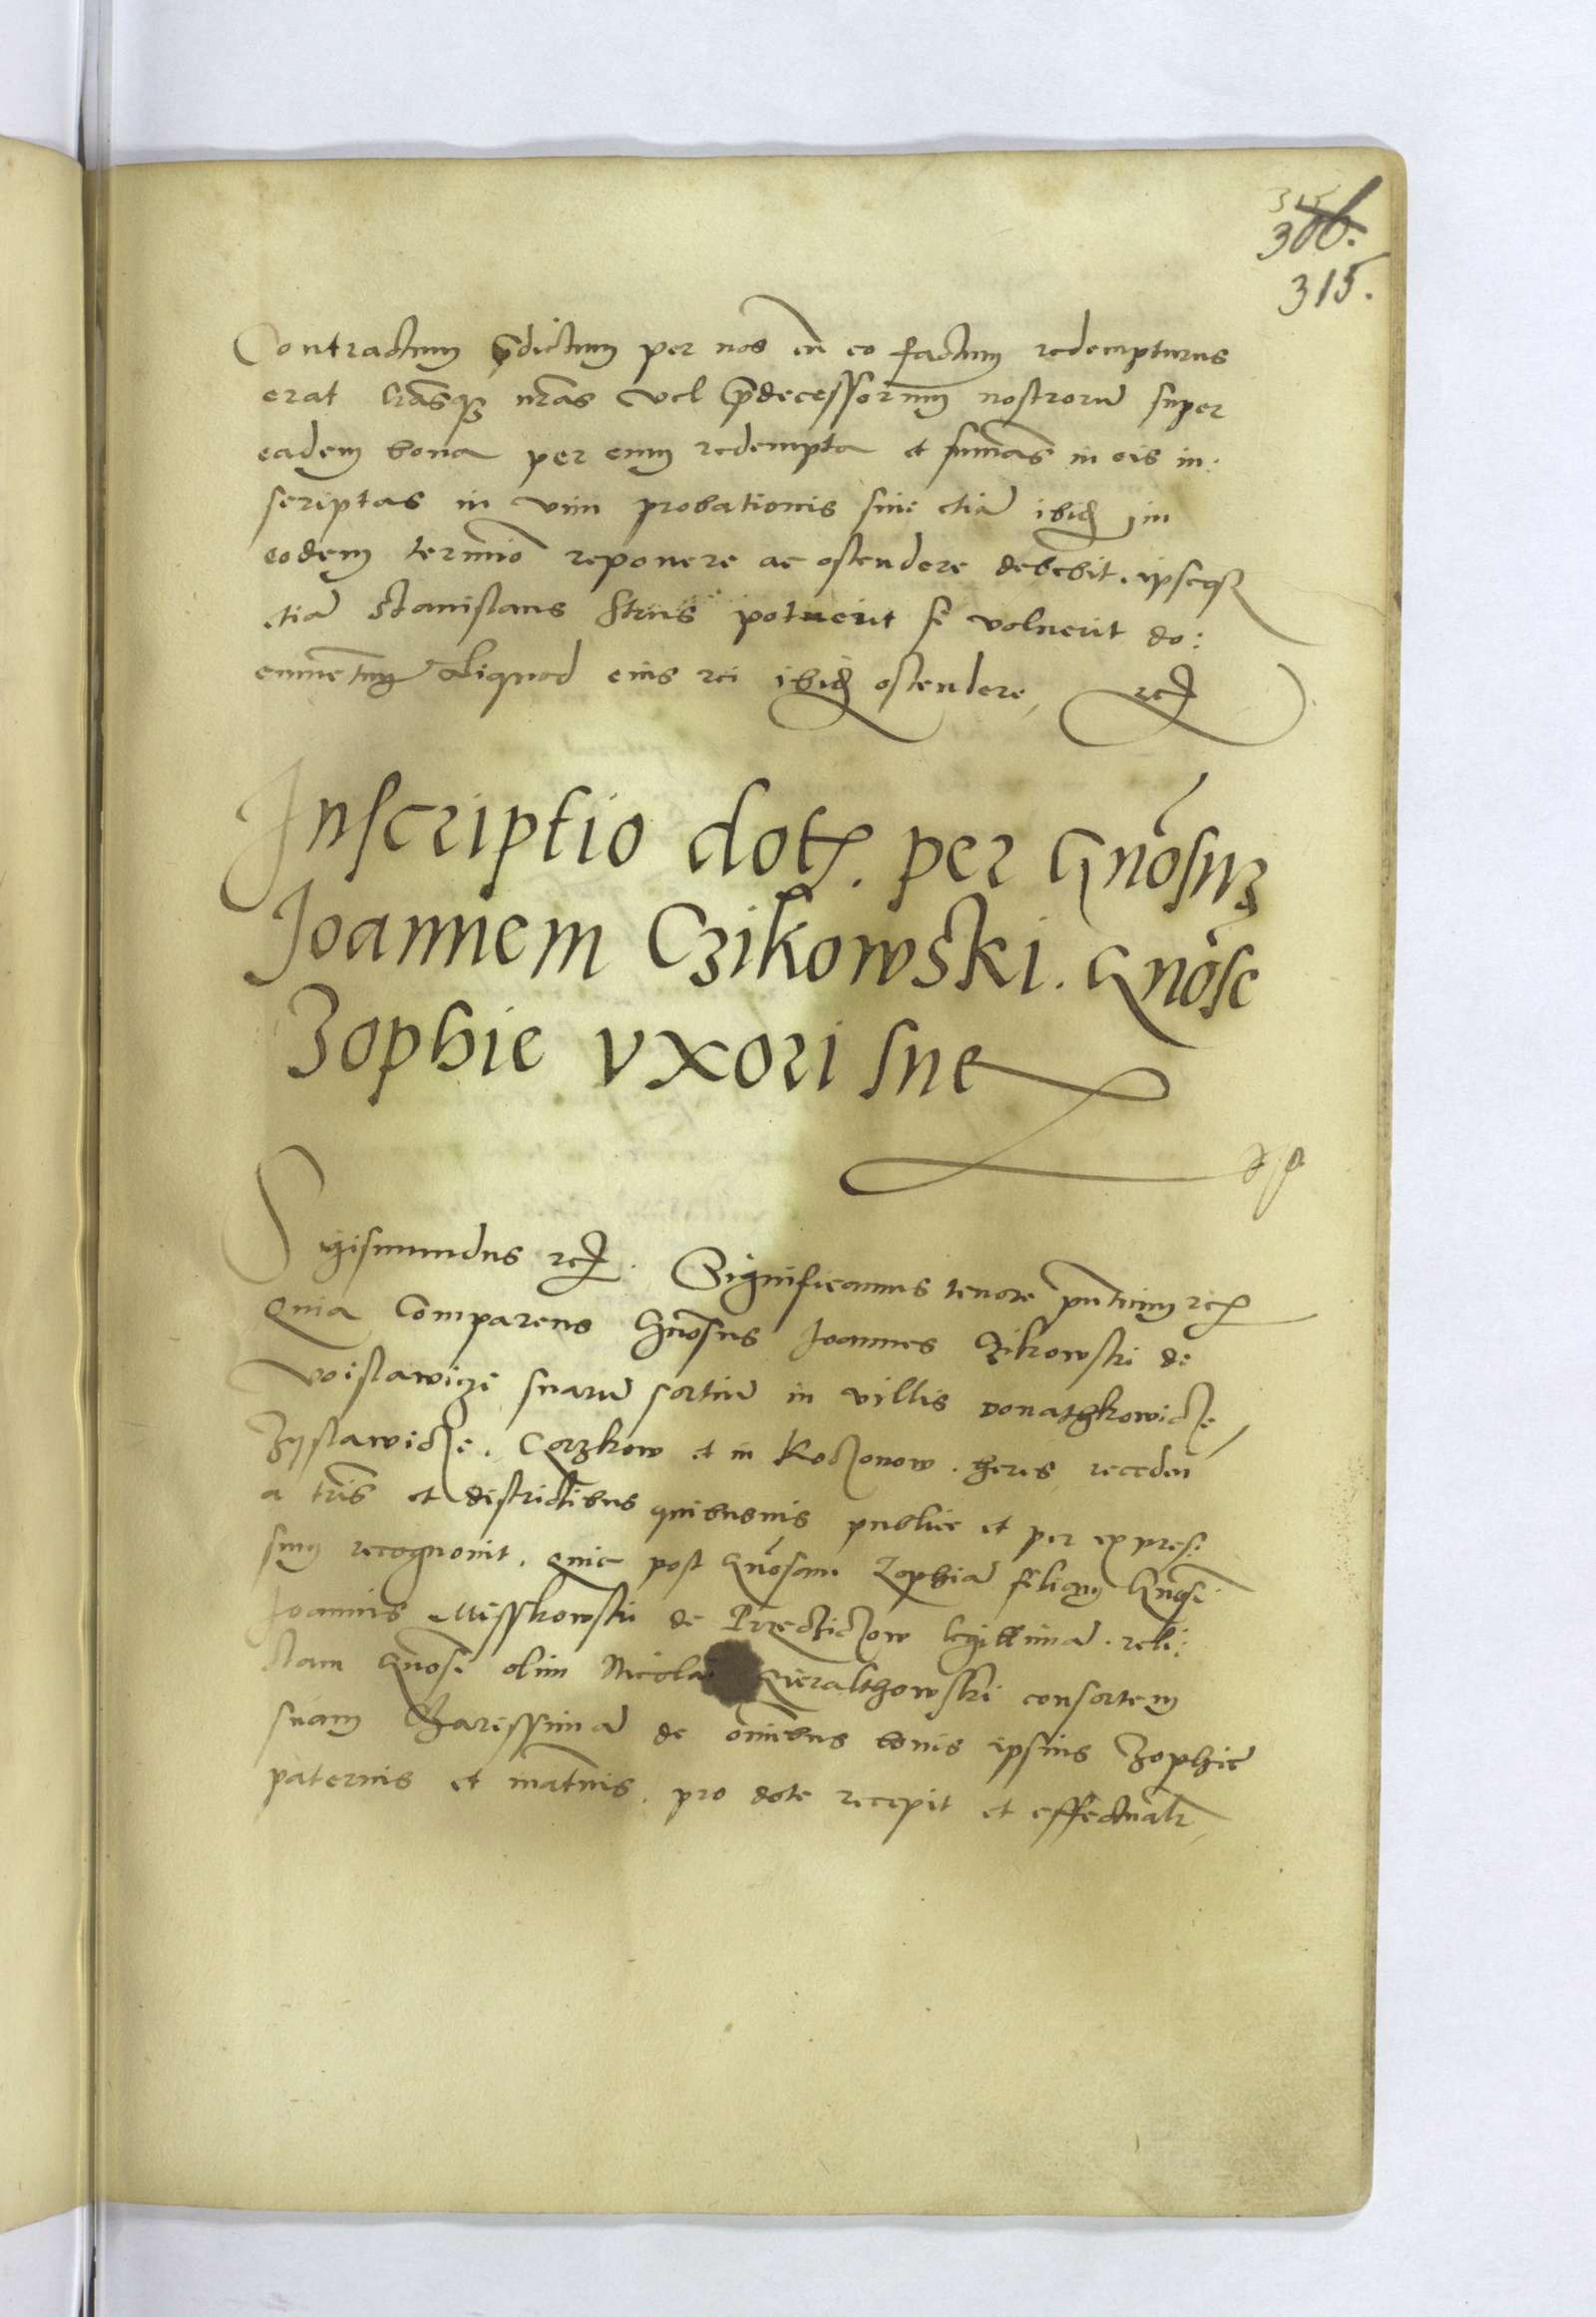 315
306.
315.
Contractum p̄dictum per nos cū eo factum redempturus
erat l̄rasq₃ nr̄as vel p̄decessorum nostrorū super
eadem bona per eum redempta et sum̄as in eis in:
scriptas in vim probationis sine etiā ibid̄ in
eodem termīo reponere ac ostendere debebit. ipseq₃
etiā Stanislaus Strus potuerit si voluerit do:
cumētum aliquod eius rei ibid̄ ostendere, rc̄
Inscriptio dot̄. per Gn̄osum
Joannem Czikowski. Gn̄ose
Zophie vxori sue
Sigismundus rc̄. Significamus tenore pn̄tium rc̄
Quia Comparens Gn̄osus Joannes Czikowski de
Voislawicze suarū sortiū in villis Donathkowicze,
Zyslawicze, Corzkow et in Koczonow. heres receden̄
a tr̄is et districtibus quibusuis publice et per expres:
sum recognouit. quia post Gn̄osam Zophiā filiam Gn̄osi
Joannis Misskowski de Przecziczow legittimā. reli:
ctam Gn̄osi olim Nicolai Gieralthowski consortem
suam Charissimā de om̄ibus bonis ipsius Zophie
paternis et mat̄nis. pro dote recepit et effectualr̄